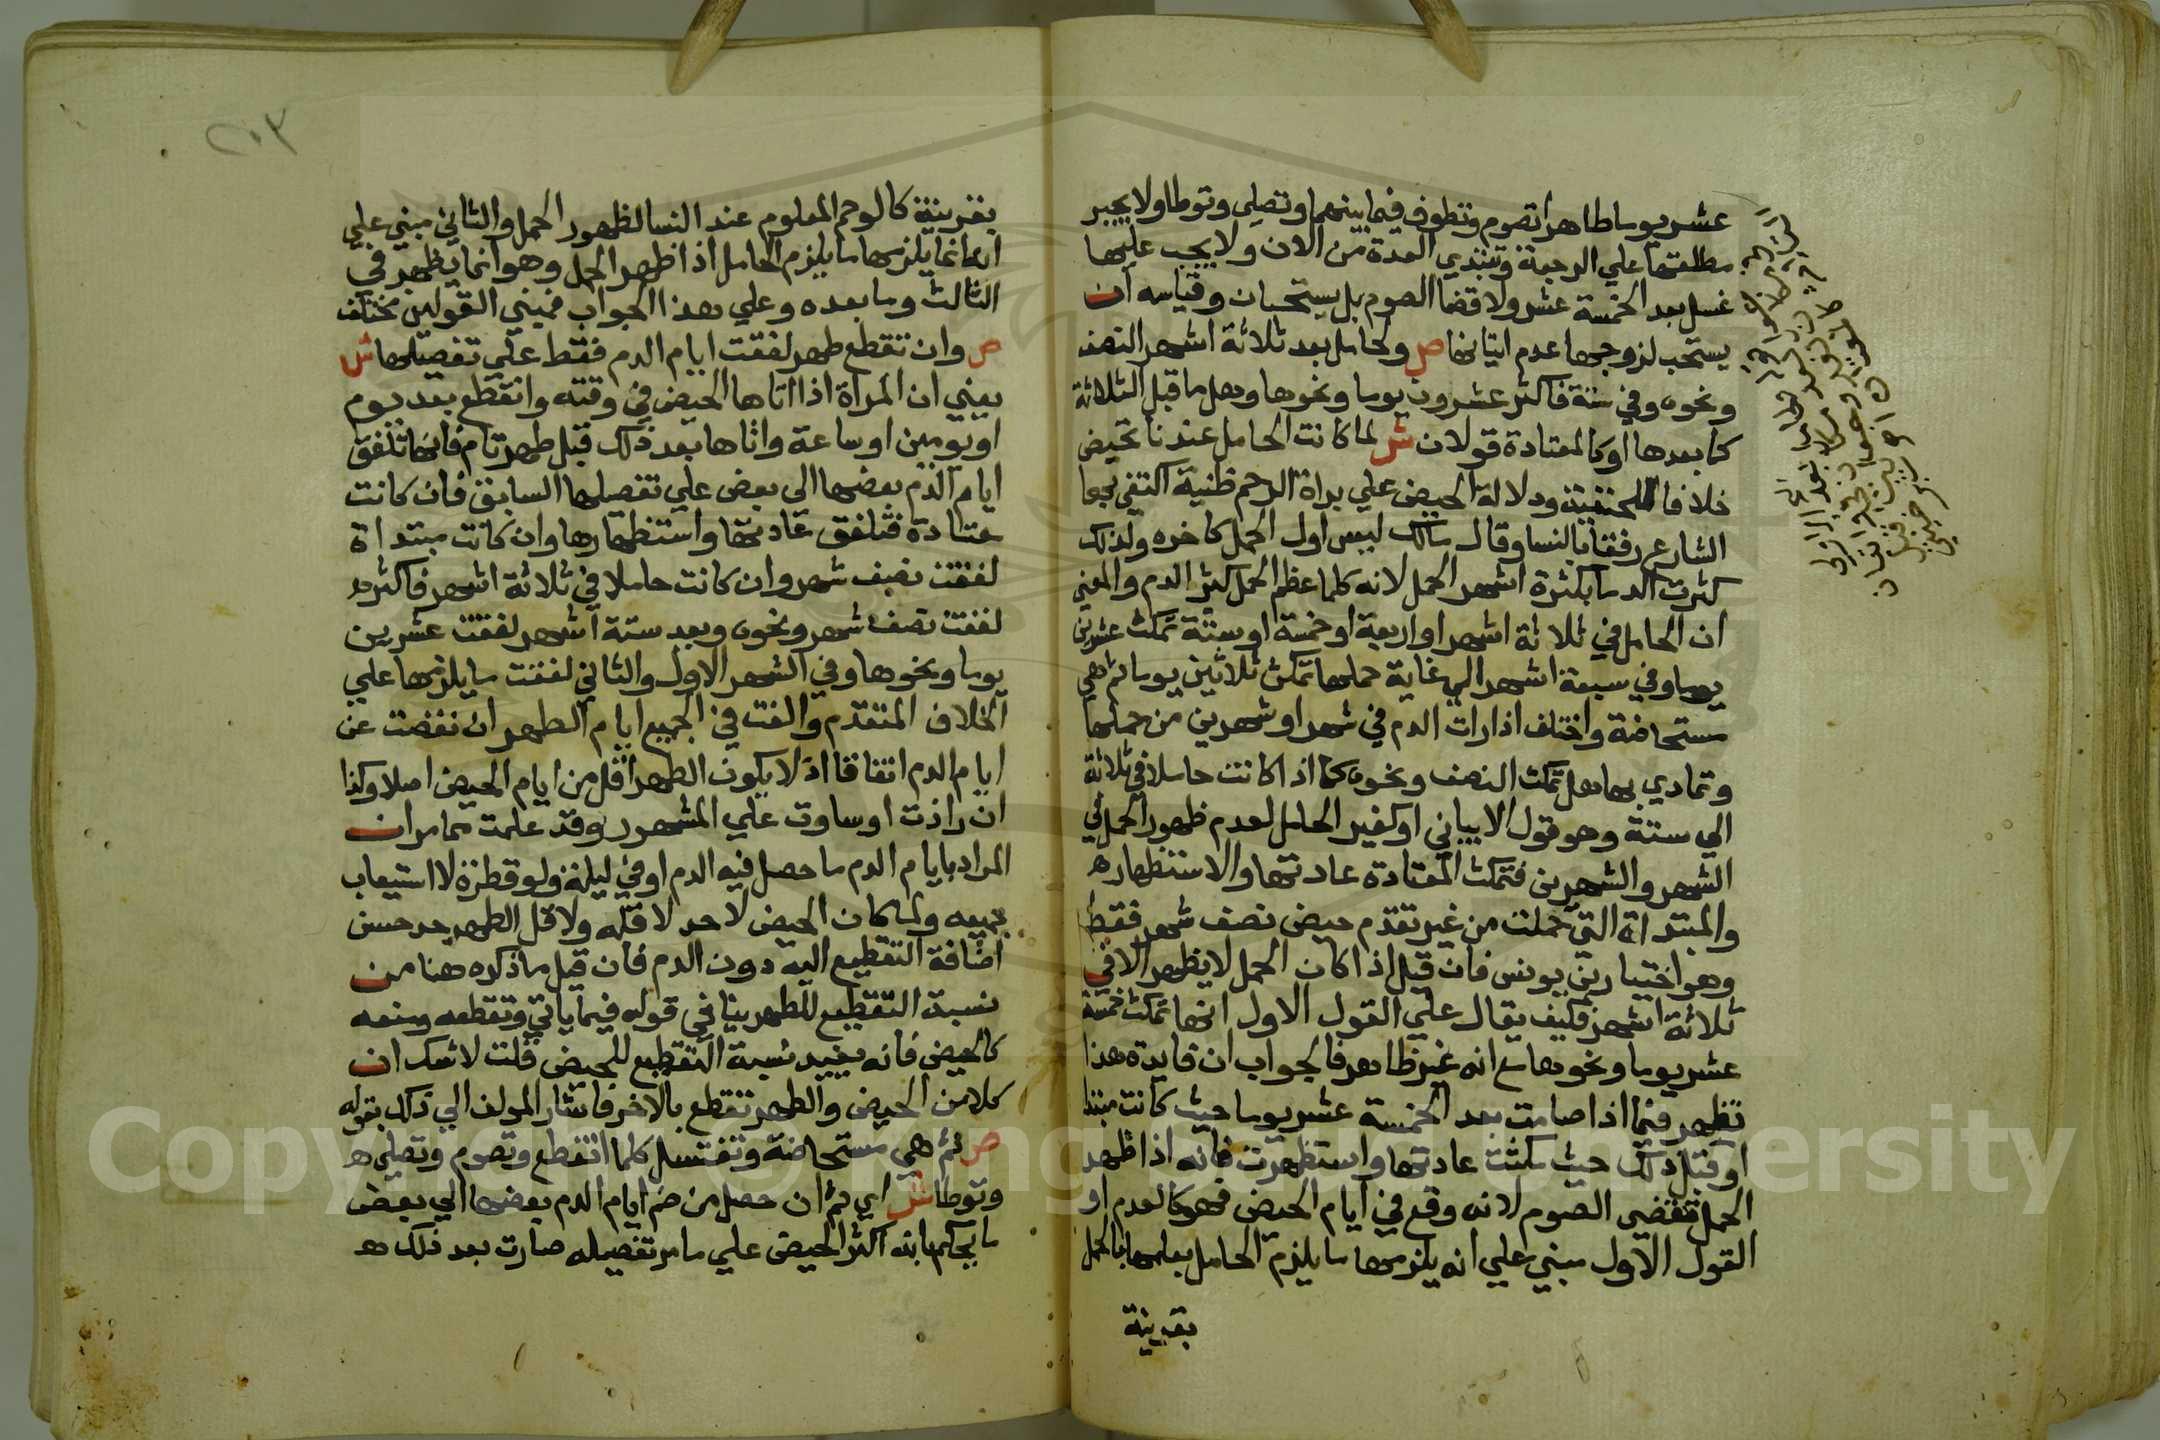 عشر يوما طاهرا تصوم وتطوف فيما بينهما وتصلي وتوطا ولا يجبر
مطلقها علي الرجعة وتبتدي العدة من الان ولا يجب عليها
غسل بعد الخمسة عشر ولا قضا الصوم بل يستحبان وقياسه ان
يستحب لزوجها عدم اتيانها ص ولحامل بعد ثلاثة اشهر النصف
ونحوه وفي ستة فاكثر عشرون يوما ونحوها وهل ما قبل الثلاثة
كما بعدها او كالمعتادة قولان ش لما كانت الحامل عندنا تحيض
خلافا للحنفية ودلالة الحيض علي براة الرحم ظنية اكتفي بها
الشارع رفقا بالنسا وقال مالك ليس اول الحمل كاخره ولذلك
كثرت الدما بكثرة اشهر الحمل لانه كلما عظم الحمل كثر الدم والمعني
ان الحامل في ثلاثة اشهر او اربعة او خمسة او ستة تمكث عشرين
يوما وفي سبعة اشهر الي غاية حملها تمكث ثلاثين يوما ثم هي
مستحاضة واختلف اذا رات الدم في شهر او شهرين من حملها
وتمادي بها هل تمكث النصف ونحوه كما اذا كانت حاملا في ثلاثة
الي ستة وهو قول الابياني او كغير الحامل لعدم ظهور الحمل في
الشهر والشهرين فتمكث المعتادة عادتها والاستظهار ه
والمبتداة التي حملت من غير تقدم حيض نصف شهر فقط
وهو اختيار بن يونس فان قيل اذا كان الحمل لا يظهر الا في
ثلاثة اشهر فكيف يقال علي القول الاول انها تمكث خمسة
عشر يوما ونحوها مع انه غير ظاهر فالجواب ان فايدة هذا
تظهر فيما اذا صامت بعد الخمسة عشر يوما حيث كانت مبتدا
او قبل ذلك حيث مكثت عادتها واستظهرت فانه اذا ظهر
الحمل تقضي الصوم لانه وقع في ايام الحيض فهو كالعدم او
القول الاول مبني علي انه يلزمها ما يلزم الحامل بعلمها بالحمل
بقرينة
بقرينة كالوحم المعلوم عند النسا لظهور الحمل والثاني مبني علي
انها انما يلزمها ما يلزم الحامل اذا ظهر الحمل وهو انما يظهر في
الثالث وما بعده وعلي هذا الجواب فمبني القولين مختلف
ص وان تقطع طهر لفقت ايام الدم فقط علي تفصيلها ش
يعني ان المراة اذا اتاها الحيض في وقته وانقطع بعد يوم
او يومين او ساعة واتاها بعد ذلك قبل طهر تام فانها تلفق
ايام الدم بعضها الي بعض علي تفصيلها السابق فان كانت
معتادة فتلفق عادتها واستظهارها وان كانت مبتداة
لفقت نصف شهر وان كانت حاملا في ثلاثة اشهر فاكثر ه
لفقت نصف شهر ونحوه وبعد ستة اشهر لفقت عشرين
يوما ونحوها وفي الشهر الاول والثاني لفقت ما يلزمها علي
الخلاف المتقدم والغت في الجميع ايام الطهر ان نقصت عن
ايام الدم اتفاقا اذ لا يكون الطهر اقل من ايام الحيض اصلا وكذا
ان زادت او ساوت علي المشهور وقد علمت مما مر ان
المراد بايام الدم ما حصل فيه الدم او في ليلة ولو قطرة لا استيعاب
جميعه ولما كان الحيض لا حد لاقله ولاقل الطهر حد حسن
اضافة التقطيع اليه دون الدم فان قيل ما ذكره هنا من
نسبة التقطيع للطهر ينافي قوله فيما ياتي وتقطعه ومنعه
كالحيض فانه يفيد نسبة التقطيع للحيض قلت لا شك ان
كلا من الحيض والطهر تقطع بالاخر فاشار المولف الي ذلك بقوله
ص ثم هي مستحاضة وتغتسل كلما انقطع وتصوم وتصلي ه
وتوطا ش اي ثم ان حصل من ضم ايام الدم بعضها الي بعض
ما يحكم بانه اكثر الحيض علي ما مر تفصيله صارت بعد ذلك ه